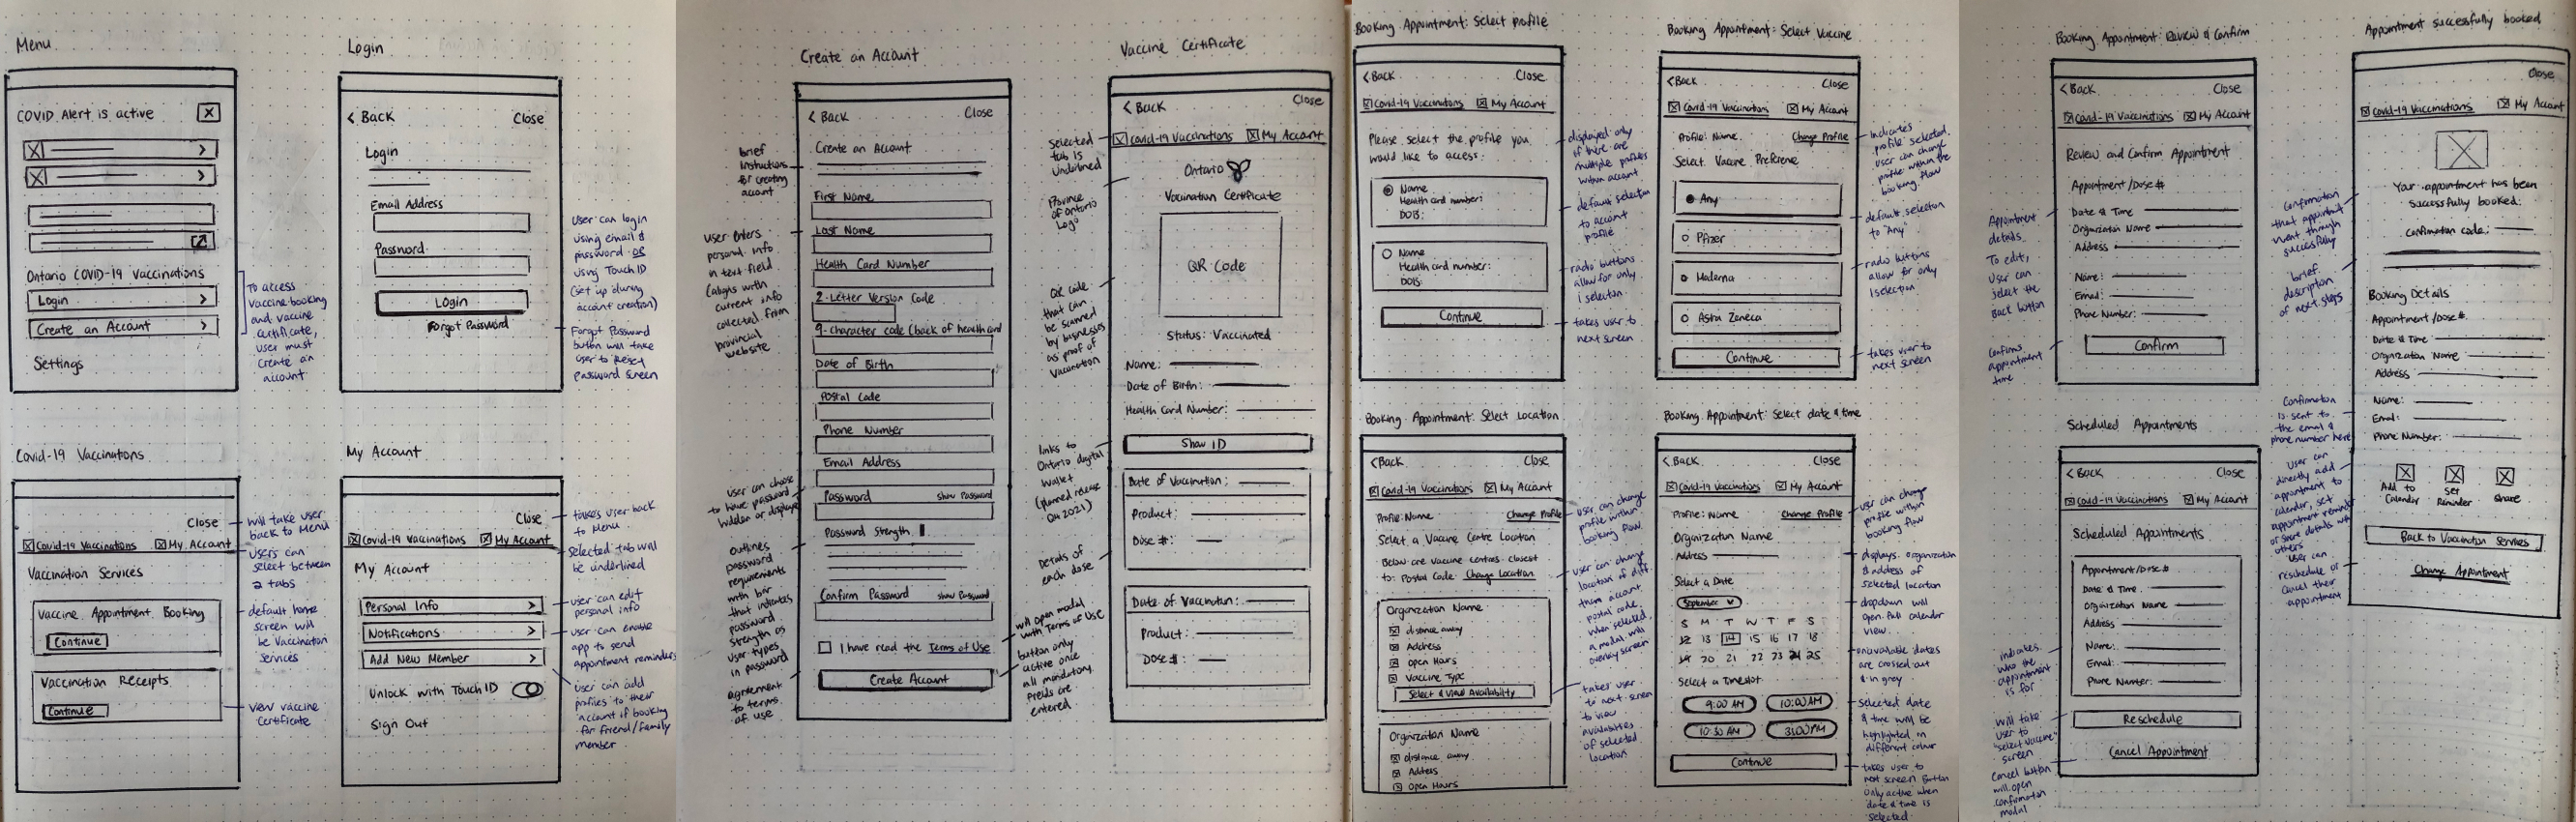 Menu
COVID Alert is active
Ontario COVID-19 Vaccinations
Login
Create an Account
Settings
To access
vaccine booking
and vaccine
certificate,
user must
create an
account
Login
< Back
Close
Login
Email Address
Password
Login
Forgot Password
User can login
using email &
password or
using Touch ID
(set up during
account creation)
Forgot Password
button will take
user to Reset
Password screen
Covid-19 Vaccinations
Close
Covid-19 Vaccinations My Account
Vaccination Services
Vaccine Appointment Booking
Continue
Vaccination Receipts
Continue
will take user
back to Menu
users can
select between
2 tabs
default home
screen will
be Vaccination
Services
view vaccine
certificate
My Account
Close
Covid-19 Vaccinations My Account
My Account
Personal Info
Notifications
Add New Member
Unlock with Touch ID
Sign Out
takes user back
to Menu
selected tab will
be underlined
user can edit
personal info
user can enable
app to send
appointment reminders
user can add
profiles to their
account if booking
for friend/family
member
Create an Account
< Back
Close
Create an Account
First Name
Last Name
Health Card Number
2-Letter Version Code
9-character code (back of health card
Date of Birth
Postal Code
Phone Number
Email Address
Password show Password
Password Strength
Confirm Password show Password
I have read the Terms of Use
Create Account
brief
instructions
for creating
account
user enters
personal info
in text field
(aligns with
current info
collected from
provincial
website
user can choose
to have password
hidden or displayed
outlines
password
requirements
with bar
that indicates
password
strength as
user types
in password
agreement
to terms
of use
will open modal
with Terms of Use
button only
active once
all mandatory
fields are
entered
Vaccine Certificate
< Back
Close
Covid-19 Vaccinations My Account
Ontario
Vaccination Certificate
QR Code
Status: Vaccinated
Name:
Date of Birth:
Health Card Number:
Show ID
Date of Vaccination:
Product:
Dose #:
Date of Vaccination:
Product:
Dose #:
Selected
tab is
underlined
Province
of Ontario
Logo
QR code
that can
be scanned
by businesses
as proof of
vaccination
links to
Ontario digital
wallet
(planned release
Q4 2021)
Details of
each dose
Booking Appointment: Select profile
< Back
Close
Covid-19 Vaccinations My Account
Please select the profile you
would like to access:
Name
Health card number:
DOB:
Name
Health card number:
DOB:
Continue
displayed only
if there are
multiple profiles
within account
default selection
to account
profile
radio buttons
allow for only
1 selection
takes user to
next screen
Booking Appointment: Select Vaccine
< Back
Close
Covid-19 Vaccinations My Account
Profile: Name Change Profile
Select Vaccine Preference
Any
Pfizer
Moderna
Astra Zeneca
Continue
indicates
profile selected
user can change
profile within the
booking flow
default selection
to "Any"
radio buttons
allow for only
1 selection
takes user to
next screen
Booking Appointment: Select Location
< Back
Close
Covid-19 Vaccinations My Account
Profile: Name Change Profile
Select a Vaccine Centre Location
Below are vaccine centres closest
to: Postal Code Change Location
Organization Name
distance away
Address
Open Hours
Vaccine Type
Select & View Availability
Organization Name
distance away
Address
Open Hours
user can change
profile within
booking flow
user can change
location if diff.
than account
postal code.
when selected
a modal will
overlay screen
takes user
to next screen
to view
availabilities
of selected
location
Booking Appointment: Select date & time
< Back
Close
Covid-19 Vaccinations My Account
Profile: Name Change Profile
Organization Name
Address
Select a Date
September
S M T W T F S
12 13 14 15 16 17 18
19 20 21 22 23 24 25
Select a Timeslot
9:00 AM 10:00 AM
10:30 AM 3:00 PM
Continue
user can change
profile within
booking flow
displays organization
& address of
selected location
dropdown will
open full calendar
view
unavailable dates
are crossed out
& in grey
selected date
& time will be
highlighted in
different colour
takes user to
next screen. Button
only active when
date & time is
selected
Booking Appointment: Review & Confirm
< Back
Close
Covid-19 Vaccinations My Account
Review and Confirm Appointment
Appointment/Dose #
Date & Time
Organization Name
Address
Name:
Email:
Phone Number:
Confirm
Appointment
details
To edit,
user can
select the
back button
Confirms
appointment
time
Scheduled Appointments
< Back
Close
Covid-19 Vaccinations My Account
Scheduled Appointments
Appointment/Dose #
Date & Time
Organization Name
Address
Name:
Email:
Phone Number:
Reschedule
Cancel Appointment
indicates
who the
appointment
is for
will take
user to
"select vaccine"
screen
Cancel button
will open
confirmation
modal
Appointment successfully booked
Close
Covid-19 Vaccinations My Account
Your appointment has been
successfully booked.
Confirmation code:
Booking Details
Appointment/Dose #
Date & Time
Organization Name
Address
Name:
Email:
Phone Number:
Add to
Calendar
Set
Reminder
Share
Back to Vaccination Services
Change Appointment
confirmation
that appointment
went through
successfully
brief
description
of next steps
Confirmation
is sent to
the email &
phone number here
user can
directly add
appointment to
calendar, set
appointment reminder
or share details with
others
user can
reschedule or
cancel their
appointment